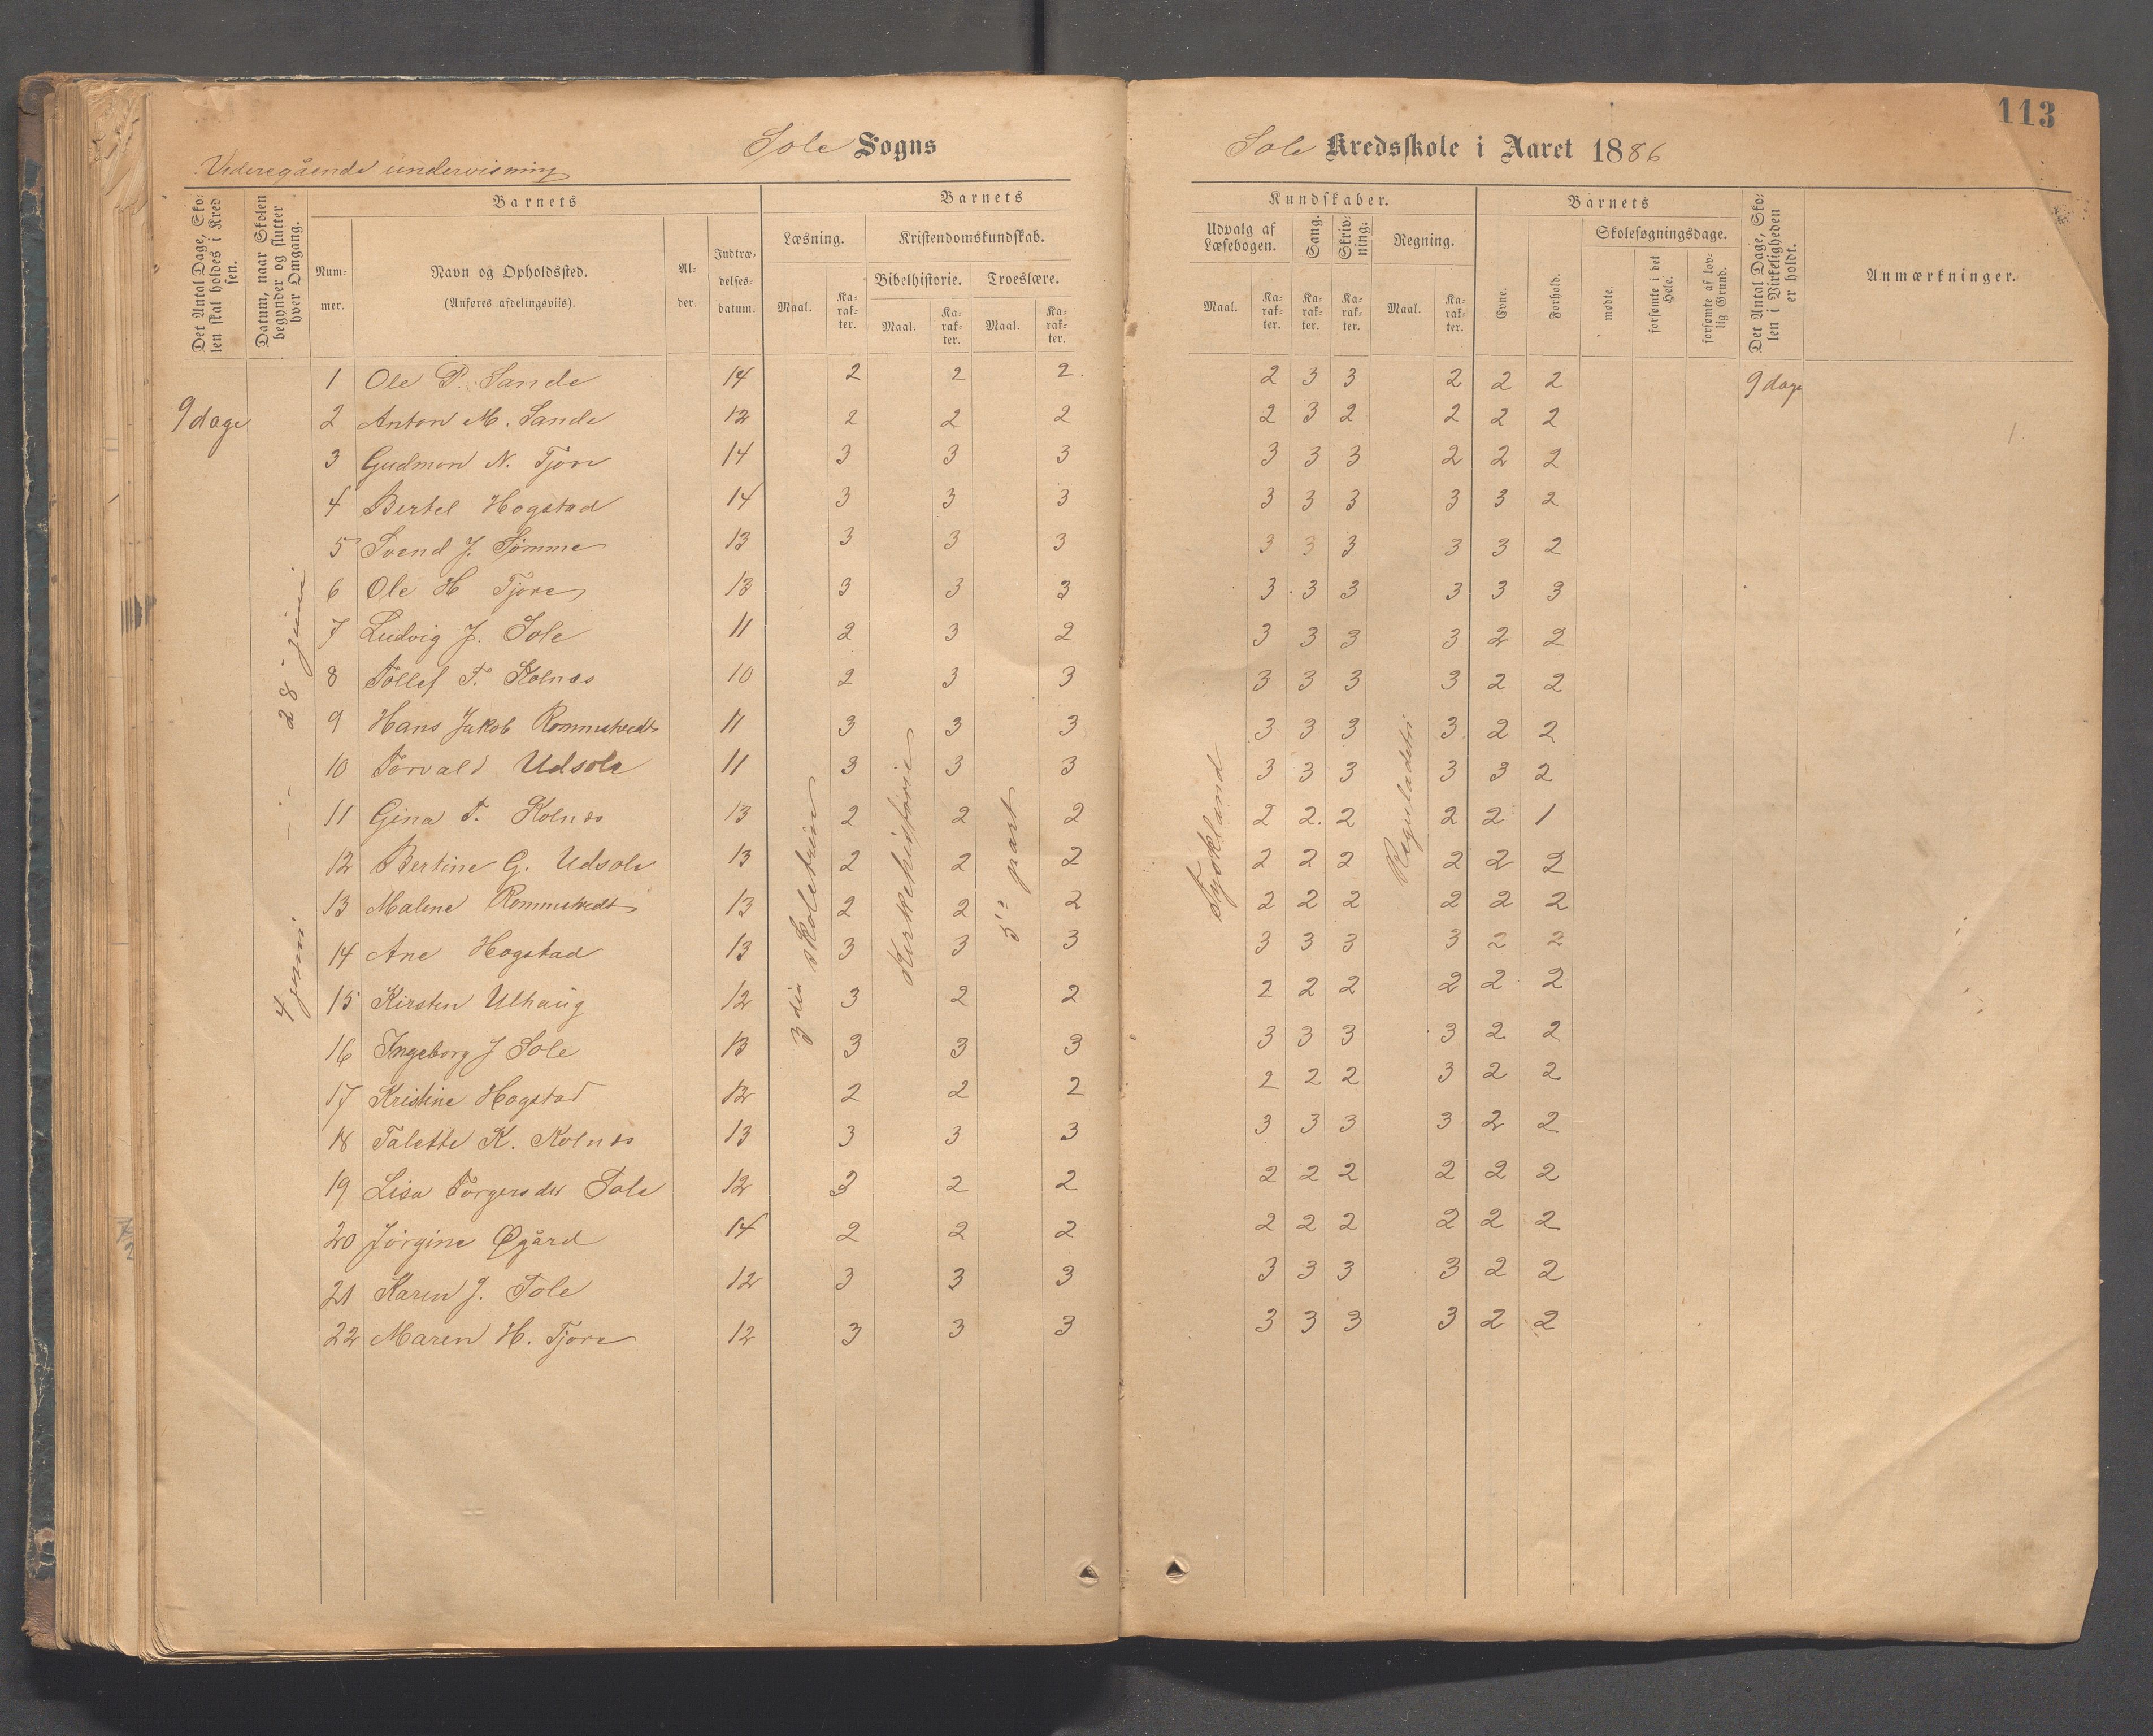 113
Sole Sogns
Sole Kredsskole i Aaret 1886
Videregående undervisning
Det Antal Dage, Skolen skal holdes i Kredsen.
Datum, naar Skolen begynder og slutter hver Omgang.
Barnets
Nummer.
Navn og Opholdssted.
(Anføres afdelingsviis).
Alder.
Indtrædelsesdatum.
Barnets
Læsning.
Maal.
Karakter.
Kristendomskundskab.
Bibelhistorie.
Maal.
Karakter.
Troeslære.
Maal.
Karakter.
Kundskaber.
Udvalg af Læsebogen.
Maal.
Karakter.
Sang.
Karakter.
Skrivning.
Karakter.
Regning.
Maal.
Karakter.
Barnets
Evne.
Forhold.
Skolesøgningsdage.
mødte.
forsømte i det Hele.
forsømte af lovlig Grund.
Det Antal Dage, Skolen i Virkeligheden er holdt.
Anmærkninger.
9 dage
4 juni - 28 juni
3die skoletrin
Kirkehistorie
3die part
Tyskland
Reguladetri
9 dage
1 Ole P. Sande 14 2 2 2 2 3 3 2 2 2
2 Anton M. Sande 12 2 2 2 2 3 2 2 2 2
3 Gudmon N. Tjore 14 3 3 3 3 3 3 2 2 2
4 Bertel Hogstad 14 3 3 3 3 3 3 3 3 2
5 Svend J. Sømme 13 3 3 3 3 3 3 3 3 2
6 Ole H Tjore 13 3 3 3 3 3 3 3 3 3
7 Ludvig J. Sole 11 2 3 2 3 3 3 3 2 2
8 Tollef T. Kolnes 10 2 3 3 3 3 3 3 2 2
9 Hans Jakob Rommetvedt 11 3 3 3 3 3 3 3 2 2
10 Torvald Udsola 11 3 3 3 3 3 3 3 3 2
11 Gina T. Kolnes 13 2 2 2 2 2 2 2 2 1
12 Bertine G. Udsola 13 2 2 2 2 2 2 2 2 2
13 Malene Rommetvedt 13 2 2 2 2 2 2 2 2 2
14 Ane Hogstad 13 3 3 3 3 3 3 3 2 2
15 Kirsten Ulhaug 12 3 2 2 2 2 2 2 2 2
16 Ingeborg J Sole 13 3 3 3 3 3 3 3 2 2
17 Kristine Hogstad 12 2 2 2 2 2 2 3 2 2
18 Talette K. Kolnes 13 3 3 3 3 3 3 3 2 2
19 Lisa Torgersdr Sole 12 3 2 2 2 2 2 2 2 2
20 Jorgine Øgård 14 2 2 2 2 2 2 2 2 2
21 Karen J. Sole 12 3 3 3 3 3 3 3 2 2
22 Maren H. Tjore 12 3 3 3 3 3 3 3 2 2